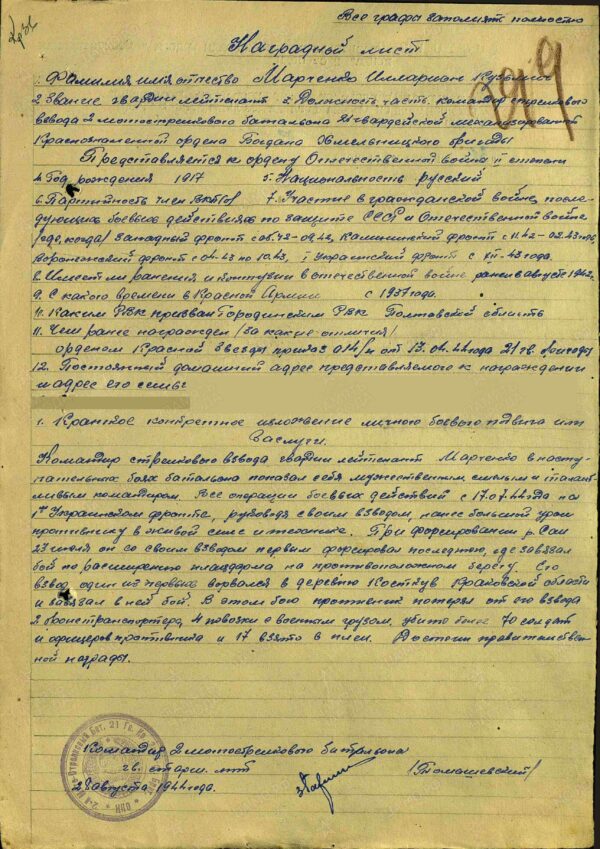 Все графы заполнять полностью
Наградной лист
1. Фамилия имя отчество Марченко Илларион Кузьмич
2 Звание гвардии лейтенант 3. Должность, часть. командир стрелкового
взвода 2 мотострелкового батальона 21 гвардейской механизированной
Краснознаменной ордена Богдана Хмельницкого бригады
Представляется к ордену Отечественной война II степени
4. Год рождения 1917 5. Национальность русский
6. Партийность член ВКП(б) 7. Участие в гражданской войне, после-
дующих боевых действиях по защите СССР и Отечественной войне
/где, когда/ Западный фронт с 06.42-08.42, Калининский фронт с 11.42-02.43 года,
Воронежский фронт с 04.43 по 10.43, I Украинский фронт с XII-43 года.
8. Имеет ли ранения и контузии в отечественной войне ранен в августе 1942 г.
9. С какого времени в Красной Армии с 1937 года.
Каким РВК призван Городинским РВК Полтавской область
11. Чем ранее награжден /за какие отличия/
орденом Красной Звезды приказ 014/н от 13.04.44 года 21 гв. бригады
12. Постоянный домашний адрес представляемого к награждению
и адрес его семьи
1. Краткое конкретное изложение личного боевого подвига или
заслуги.
Командир стрелкового взвода гвардии лейтенант Марченко в насту-
пательных боях батальона показал себя мужественным смелым и талант-
ливым командиром. Все операции боевых действий с 17.07.44 года на
1м Украинском фронте, руководя своим взводом, нанес большой урон
противнику в живой силе и технике. При форсировании р. Сан
23 июля он со своим взводом первым форсировал последнюю, где завязал
бой по расширению плацдарма на противоположном берегу. Его
взвод один из первых ворвался в деревню Краковской области
и завязал в ней бой. В этом бою противник потерял от его взвода
2 бронетранспортера, 4 повозки с военным грузом, убито более 70 солдат
и офицеров противника и 17 взято в плен. Достоин правительствен-
ной награды.
Командир 2 мотострелкового батальона
гв. старш. лт
/Томашевский/
28 августа 1944 года.